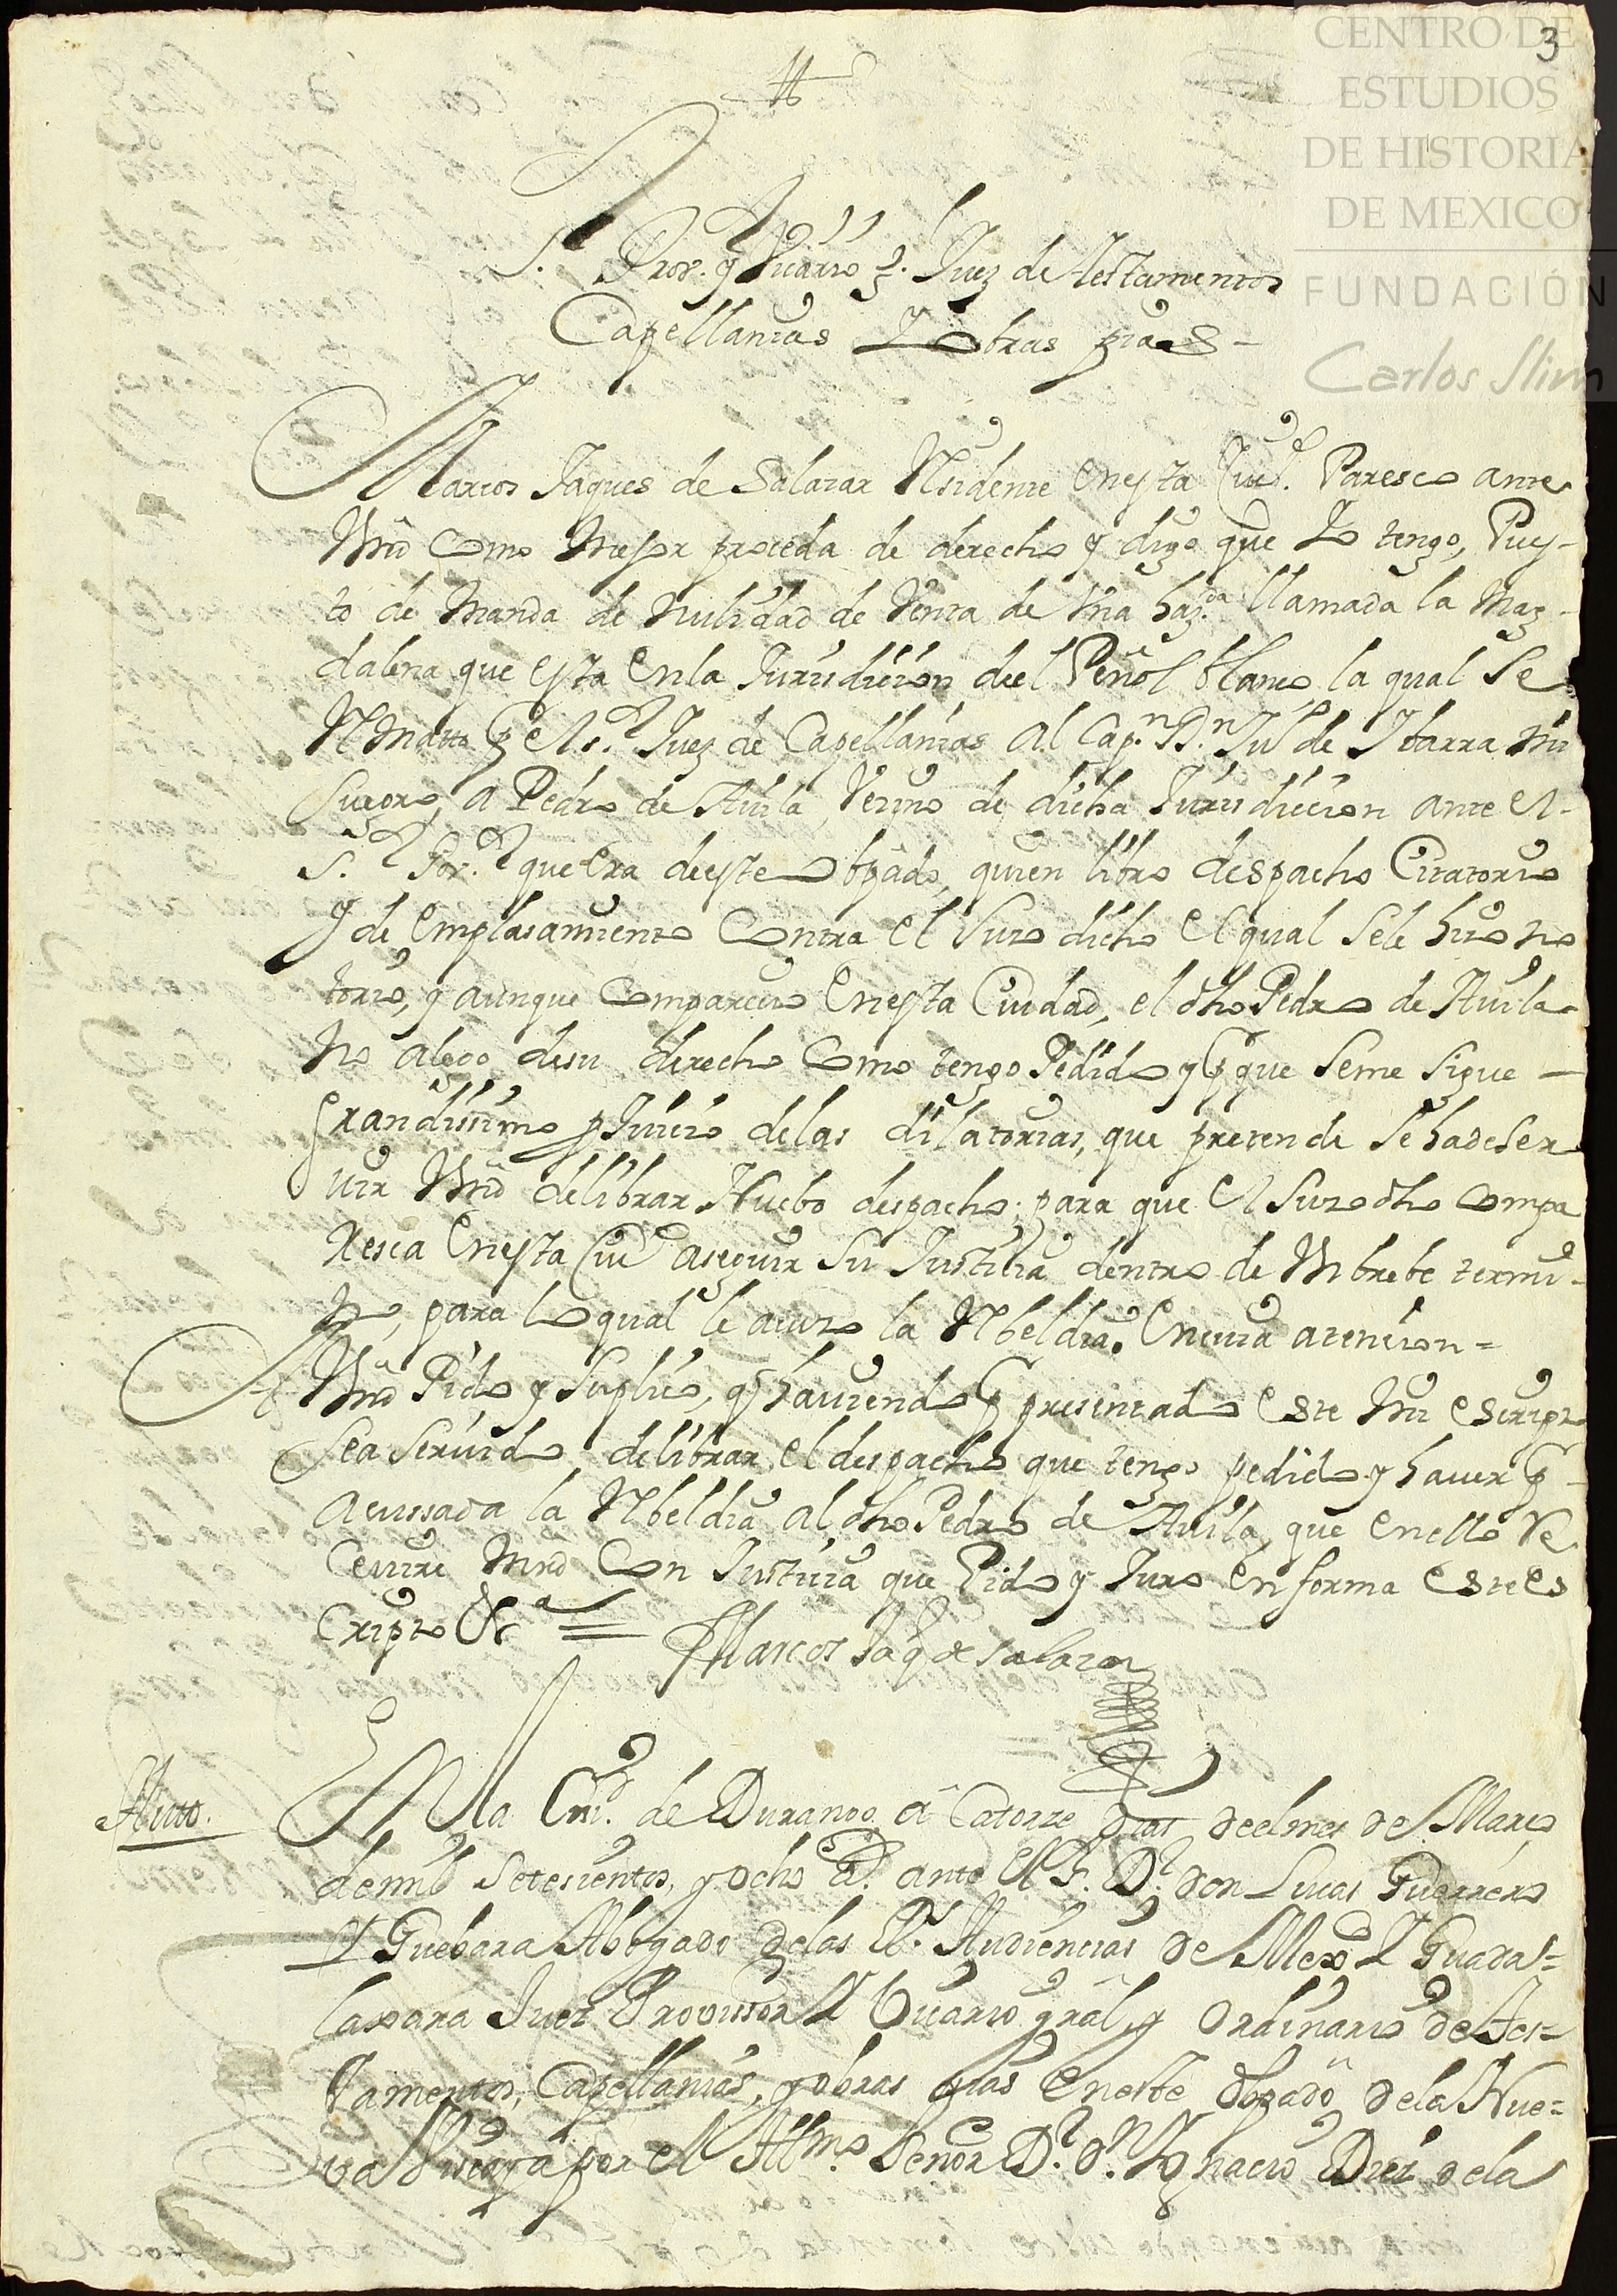 CENTRO DE
ESTUDIOS
DE HISTORIA
DE MEXICO
FUNDACIÓN
Carlos Slim
3
S.r Pror. y Vicario g.l Juez de testamentos
Capellanias Y obras pias –
Marcos Jaques de Salazar Residente en esta Ciud. Paresco ante
Vmd como mejor proceda de derecho y digo que Yo tengo, Pues-
to de manda de nulidad de Venta de Vna haz.da llamada la Mag-
dalena que esta en la Jurisdicion deel Peñol blanco la qual se
Remato p.r el s.r Juez de Capellanias al Cap.n D.n Ju.o de Ybarra mi
suegro, a Pedro de Auila Vezino de dicha Jurisdiccion ante el
S.r Pror. que era de este obpado, quien libro despacho Citatorio
y de emplasamiento contra el suso dicho el qual se le hizo no
torio, y aunque comparecio en esta Ciudad, el dho Pedro de Auila
no alego de su derecho como tengo Pedido y p.r que se me sigue –
grandissimo pjuicio de las dilatorias, que pretende se ha de ser
uir Vmd de librar Nuebo despacho para que el suso dho compa
resca en esta Ciud a seguir su Justicia dentro de Vn brebe termi-
no, para lo qual le acuso la Rebeldia. en cuia atencion =
A Vmd Pido y suplico, q hauiendo p.r presentado este mi escripto
sea seruido de librar el despacho que tengo pedido y hauer p.r
acussada la Rebeldia al dho Pedro de Auila, que en ello Re
ceuire Mrd con Justicia que Pido y Juro en forma este es
cripto &.a =
Marcos Jaq de salazar
Auto.
En la Ciu.d de Durango â Catorze dias deel mes de Marzo
de mil setesientos, y ocho a.s ante el S.r D.r don Lucas Guerrero
Y Guebara Abogado de las R.s Audiencias de Mexco Y Guadal=
laxara Juez Provissor Y Vicario gral, y ordinario de Tes=
tamentos, Capellanias, y obras pias en este obpado de la Nue=
va Viscaya por el Ill.mo Señor D.r d.n Ygnacio Diez de la